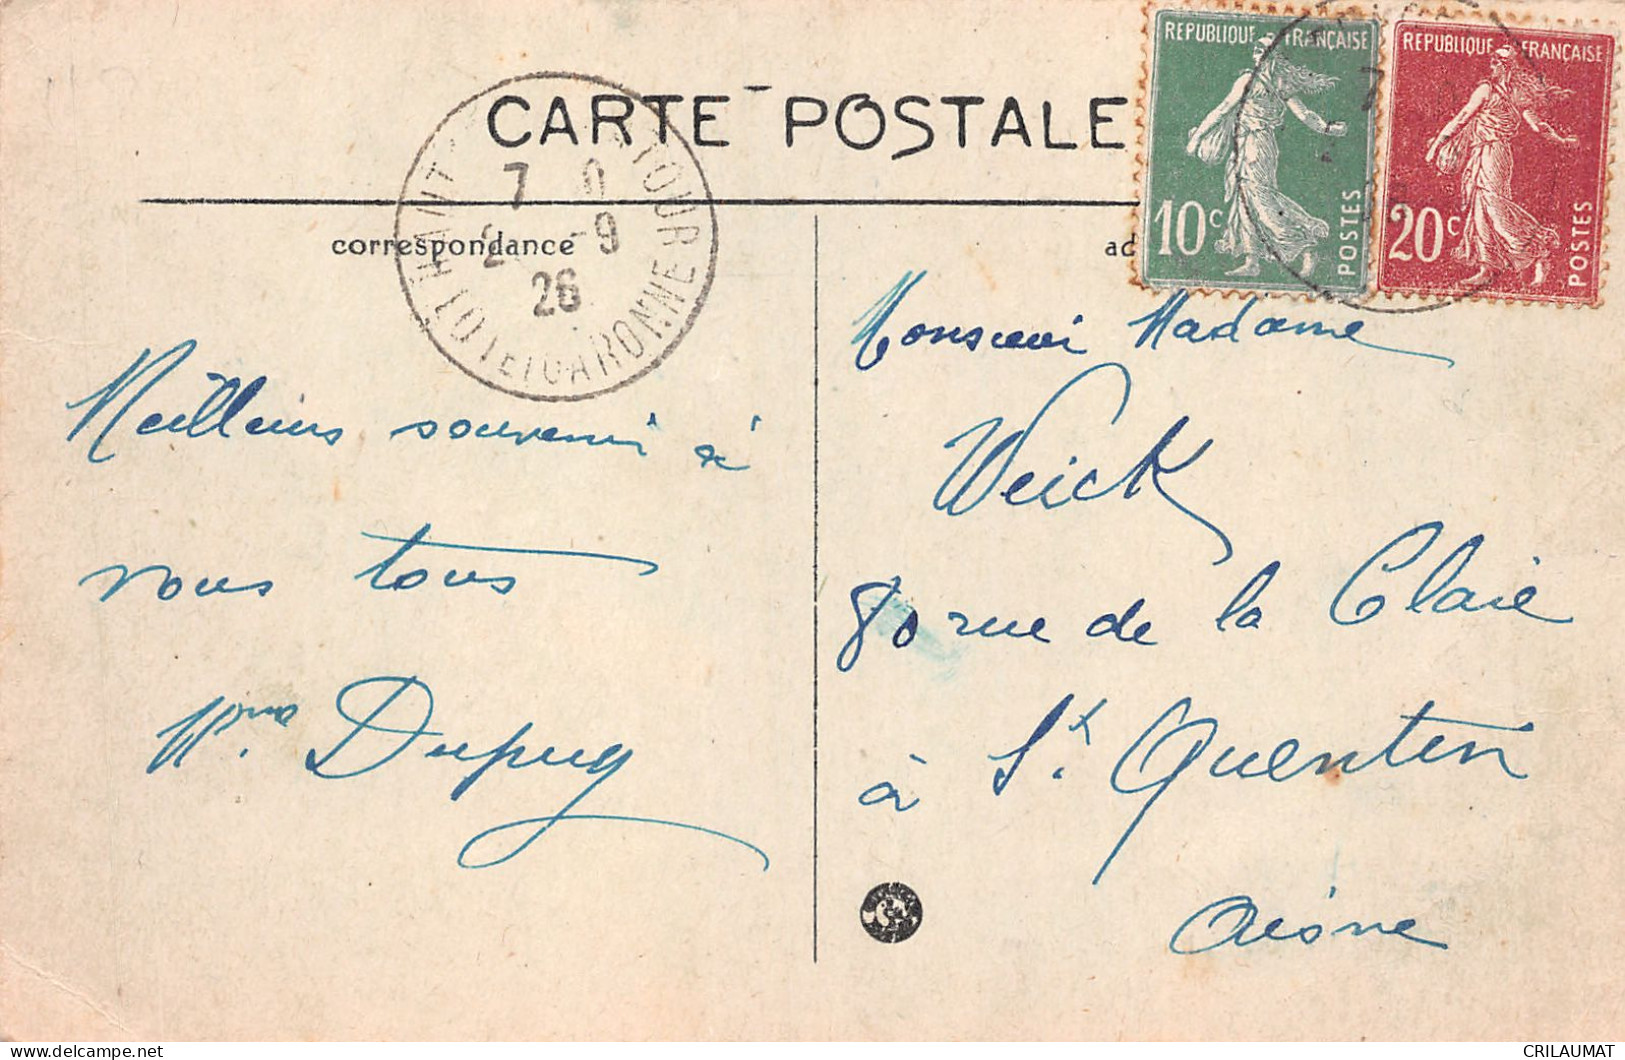 CARTE POSTALE
REPUBLIQUE FRANÇAISE
10c
POSTES
REPUBLIQUE FRANÇAISE
20c
POSTES
7
2 -9
26
LOT ET GARONNE
correspondance
ad
Meilleurs souvenir à
vous tous
Mme Dupuy
Monsieur Madame
Weick
80 rue de la Claie
à St. Quentin
Aisne
CRILAUMAT